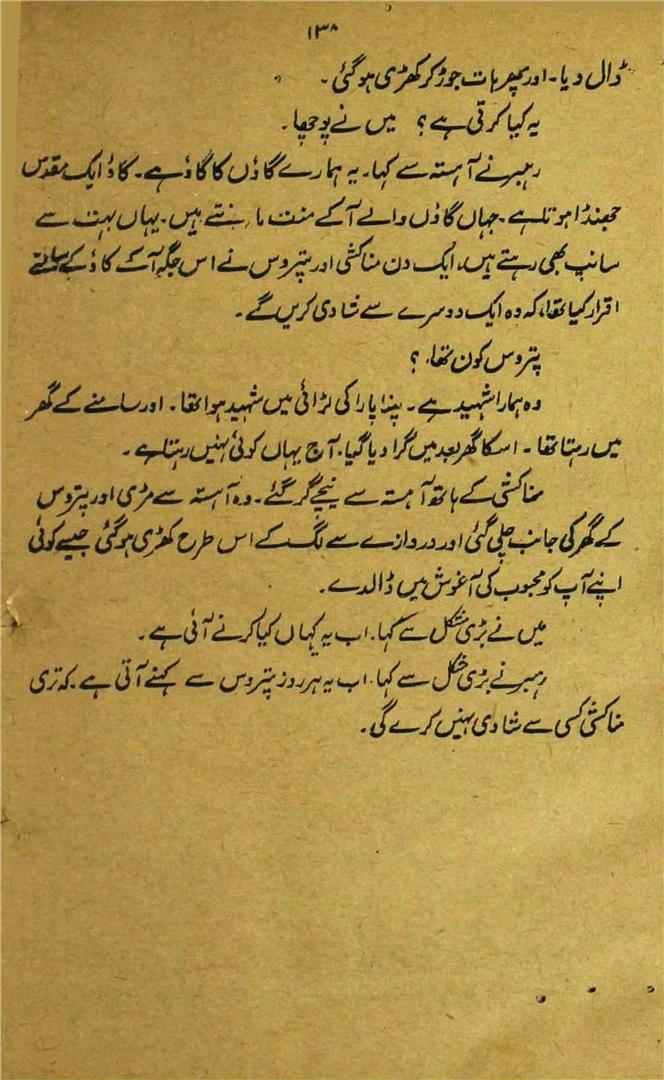 ۱۳۸
ڈال دیا۔ اور پھر ہات جوڑ کر کھڑی ہو گئی۔
یہ کیا کرتی ہے؟ میں نے پوچھا۔
رہبر نے آہستہ سے کہا۔ یہ ہمارے گاؤں کا گاؤ ہے۔ گاؤ ایک مقدس
جھنڈا ہوتا ہے۔ جہاں گاؤں والے آ کے منت مانتے ہیں۔ یہاں بہت سے
سانپ بھی رہتے ہیں، ایک دن مناکشی اور پتروس نے اس جگہ آ کے گاؤ کے سامنے
اقرار کیا تھا، کہ وہ ایک دوسرے سے شادی کریں گے۔
پتروس کون تھا؟
وہ ہمارا شہید ہے۔ پنڈا پارا کی لڑائی میں شہید ہوا تھا۔ اور سامنے کے گھر
میں رہتا تھا۔ اسکا گھر بعد میں گرا دیا گیا۔ آج یہاں کوئی نہیں رہتا ہے۔
مناکشی کے ہاتھ آہستہ سے نیچے گر گئے۔ وہ آہستہ سے مڑی اور پتروس
کے گھر کی جانب چلی گئی اور دروازے سے لگ کے اس طرح کھڑی ہو گئی جیسے کوئی
اپنے آپ کو محبوب کی آغوش میں ڈالدے۔
میں نے بڑی مشکل سے کہا۔ اب یہ یہاں کیا کرنے آئی ہے۔
رہبر نے بڑی مشکل سے کہا۔ اب یہ ہر روز پتروس سے کہنے آتی ہے۔ کہ تری
مناکشی کسی سے شادی نہیں کرے گی۔